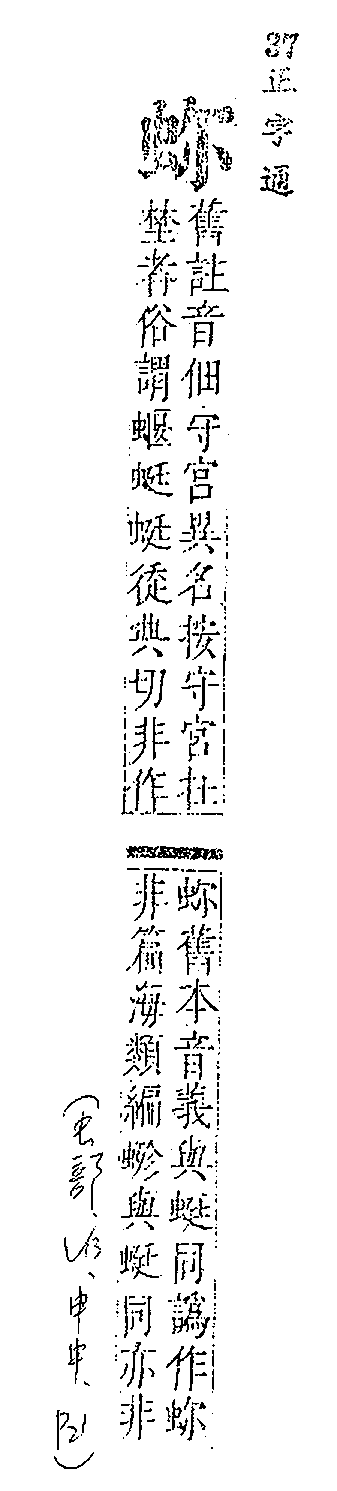 37正字通
蚞
舊註音佃守宮異名按守宮在
塟者俗謂蝘蜓蜓徒典切非作
蚞舊本音義與蜓同譌作蚞
非篇海類編與蜓同亦非
申中、P21